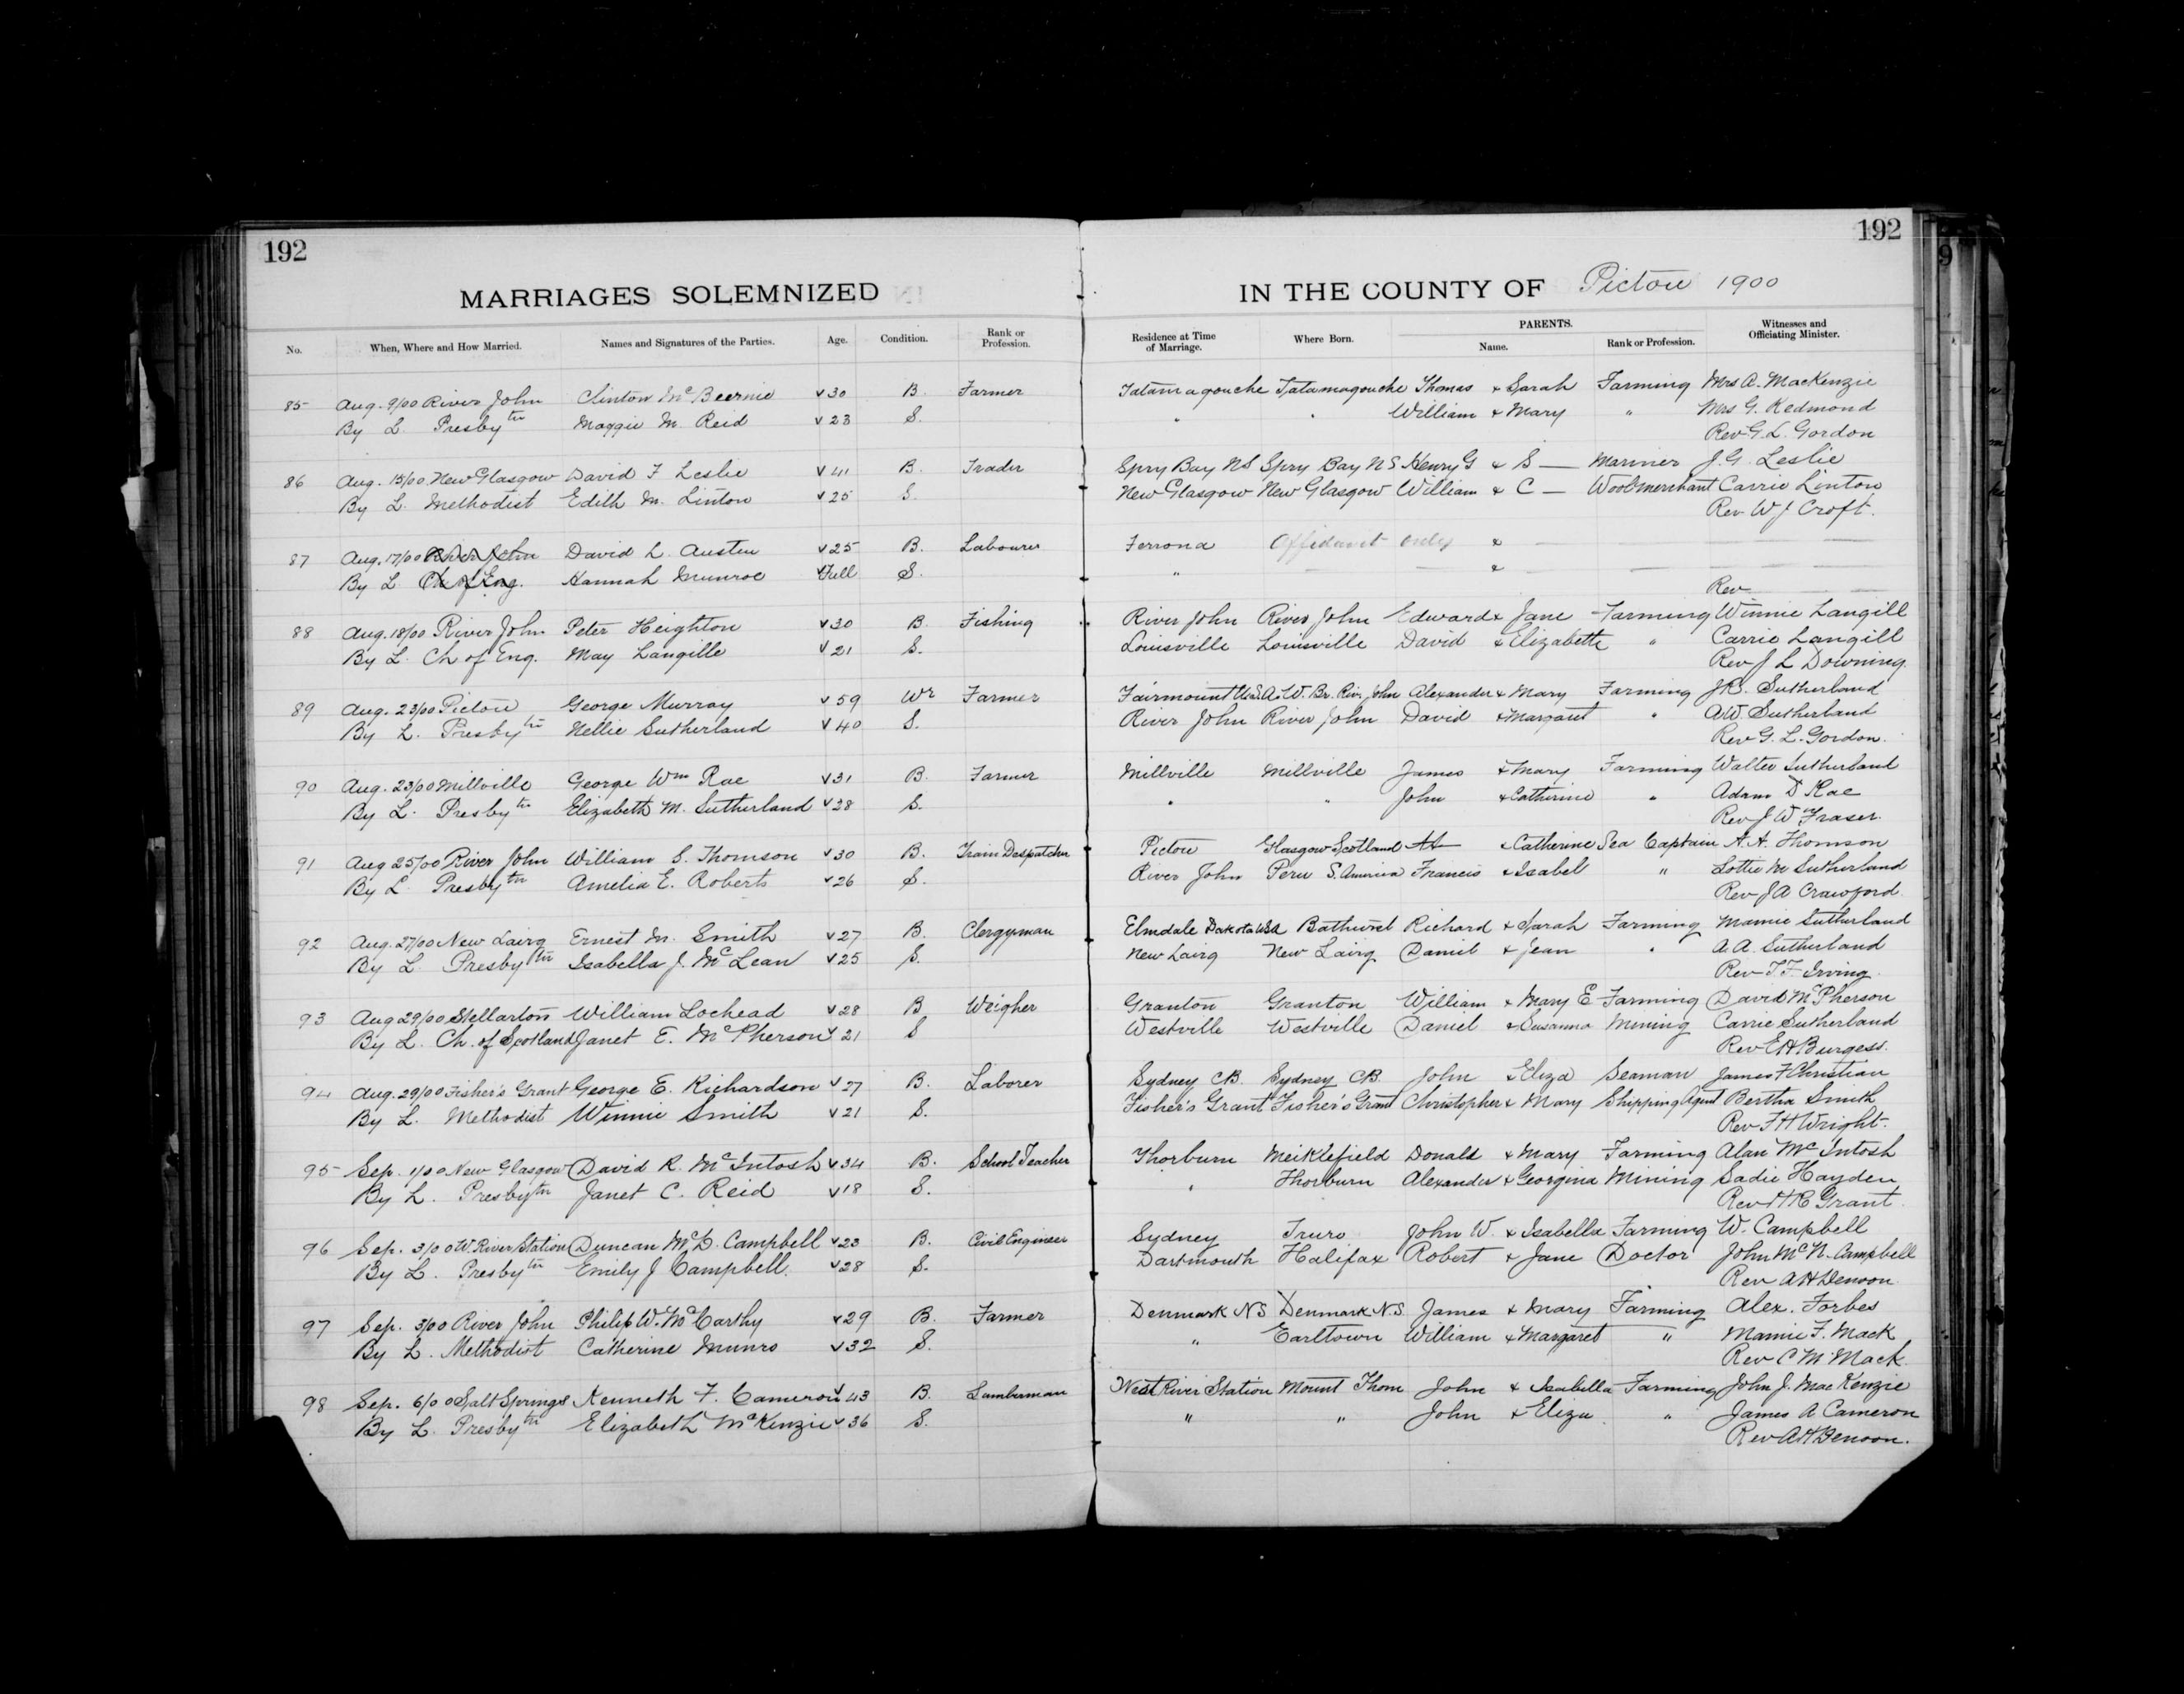 192
192
MARRIAGES SOLEMNIZED
IN THE COUNTY OF Pictou 1900
No. When, Where and How Married. Names and Signatures of the Parties. Age. Condition. Rank or Profession. Residence at Time of Marriage. Where Born. PARENTS. Name. Rank or Profession. Witnesses and Officiating Minister.
85 Aug. 9/00 River John Clinton Mc Beernie v 30 B. Farmer Tatamagouche Tatamagouche Thomas & Sarah Farming Mrs A. MacKenzie
By L. Presbytn Maggie M. Reid v 23 S. " " William & Mary " Mrs G. Redmond
Rev G. L. Gordon
86 Aug. 15/00 New Glasgow David F Leslie v 41 B. Trader Spry Bay NS Spry Bay NS Henry G & S — Mariner J. G. Leslie
By L. Methodist Edith M. Linton v 25 S. New Glasgow New Glasgow William & C — Wool merchant Carrie Linton
Rev W J Croft.
87 Aug. 17/00 River John David L. Austen v 25 B. Labourer Ferrona Affidavit only &
By L Ch of Eng. Hannah Munroe v Full S. " &
Rev
88 Aug. 18/00 River John Peter Heighton v 30 B. Fishing River John River John Edward & Jane Farming Winnie Langill
By L. Ch of Eng. May Langille v 21 S. Louisville Louisville David & Elizabeth " Carrie Langill
Rev J L Downing.
89 Aug. 23/00 Pictou George Murray v 59 Wr Farmer Fairmount U.S.A. W. Br. Riv. John Alexander & Mary Farming JR. Sutherland
By L. Presbytn Nellie Sutherland v 40 S. River John River John David & Margaret " A.W. Sutherland
Rev G. L. Gordon.
90 Aug. 23/00 Millville George Wm Rae v 31 B. Farmer Millville Millville James & Mary Farming Walter Sutherland
By L. Presbytn Elizabeth M. Sutherland v 28 S. " " John & Catherine " Adam D Rae
Rev J W Fraser.
91 Aug 25/00 River John William S. Thomson v 30 B. Train Despatcher Pictou Glasgow Scotland & Catherine Sea Captain A. A. Thomson
By L Presbytn Amelia E. Roberts v 26 S. River John Peru S. America Francis & Isabel " Lottie M Sutherland
Rev J A Crawford.
92 Aug. 27/00 New Lairg Ernest M. Smith v 27 B. Clergyman Elmdale Dakota USA Bathurst Richard & Sarah Farming Mamie Sutherland
By L. Presbytn Isabella J. McLean v 25 S. New Lairg New Lairg Daniel & Jean " A. A. Sutherland
Rev T. F. Irving.
93 Aug 29/00 Stellarton William Lochead v 28 B Weigher Granton Granton William & Mary E Farming David McPherson
By L. Ch. of Scotland Janet E. McPherson v 21 S Westville Westville Daniel & Susanna Mining Carrie Sutherland
Rev E H Burgess.
94 Aug. 29/00 Fisher's Grant George E. Richardson v 27 B. Laborer Sydney C.B. Sydney C.B. John & Eliza Seaman James F Christian
By L. Methodist Winnie Smith v 21 S. Fisher's Grant Fisher's Grant Christopher & Mary Shipping Agent Bertha Smith
Rev F H Wright.
95 Sep. 1/00 New Glasgow David R. McIntosh v 34 B. School Teacher Thorburn Meiklefield Donald & Mary Farming Alan McIntosh
By L. Presbytn Janet C. Reid v 18 S. " Thorburn Alexander & Georgina Mining Sadie Hayden
Rev H R Grant
96 Sep. 3/00 W. River Station Duncan McD. Campbell v 23 B. Civil Engineer Sydney Truro John W. & Isabella Farming W. Campbell
By L. Presbytn Emily J Campbell. v 28 S. Dartmouth Halifax Robert & Jane Doctor John McN. Campbell
Rev A H Denoon
97 Sep. 3/00 River John Philip W. McCarthy v 29 B. Farmer Denmark N.S Denmark N.S. James & Mary Farming Alex. Forbes
By L. Methodist Catherine Munro v 32 S. " Earltown William & Margaret " Mamie F. Mack
Rev C M Mack.
98 Sep. 6/00 Salt Springs Kenneth F. Cameron v 43 B. Lumberman West River Station Mount Thom John & Isabella Farming John J. MacKenzie
By L. Presbytn Elizabeth McKenzie v 36 S. " " John & Eliza " James A Cameron
Rev A H Denoon.